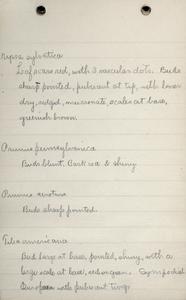 Nyssa sylvatica
Leaf scars red, with 3 vascular dots. Buds
sharp pointed, pubescent at tip, with lower
dry, ridged, mucronate, scales at base,
greenish brown.
Prunus pennsylvanica
Buds blunt. Bark red & shiny
Prunus serotina
Buds sharp pointed.
Tilia americana
Bud large at base, pointed, shiny, with a
large scale at base, red or green. Sympodial
European with pubescent twigs